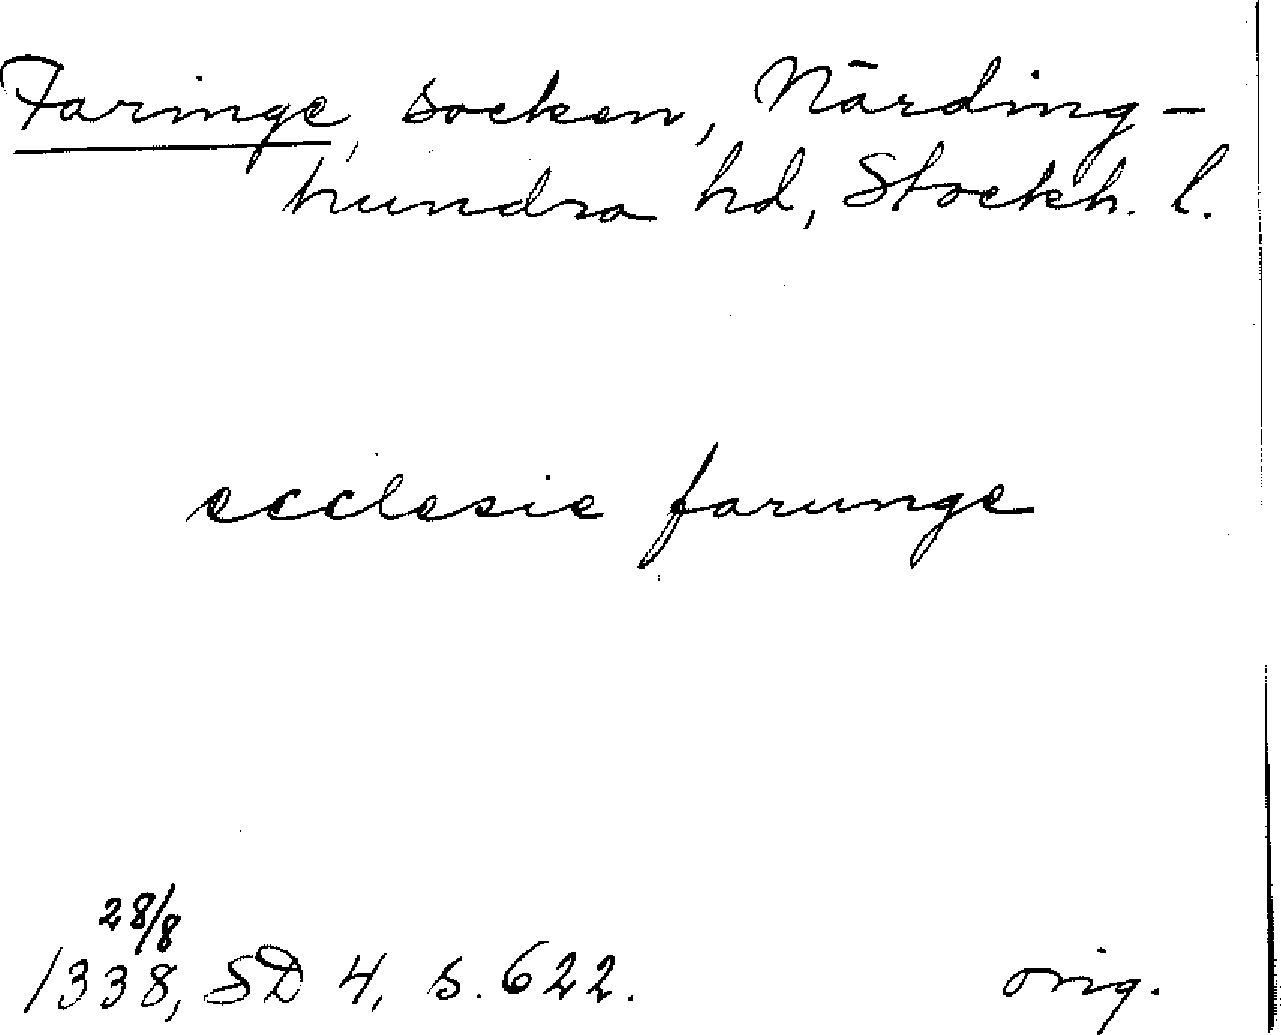 Faringe socken, Närding-
hundra hd, Stockh. l.
ecclesie farunge
28/8
1338, SD 4, s. 622.
orig.